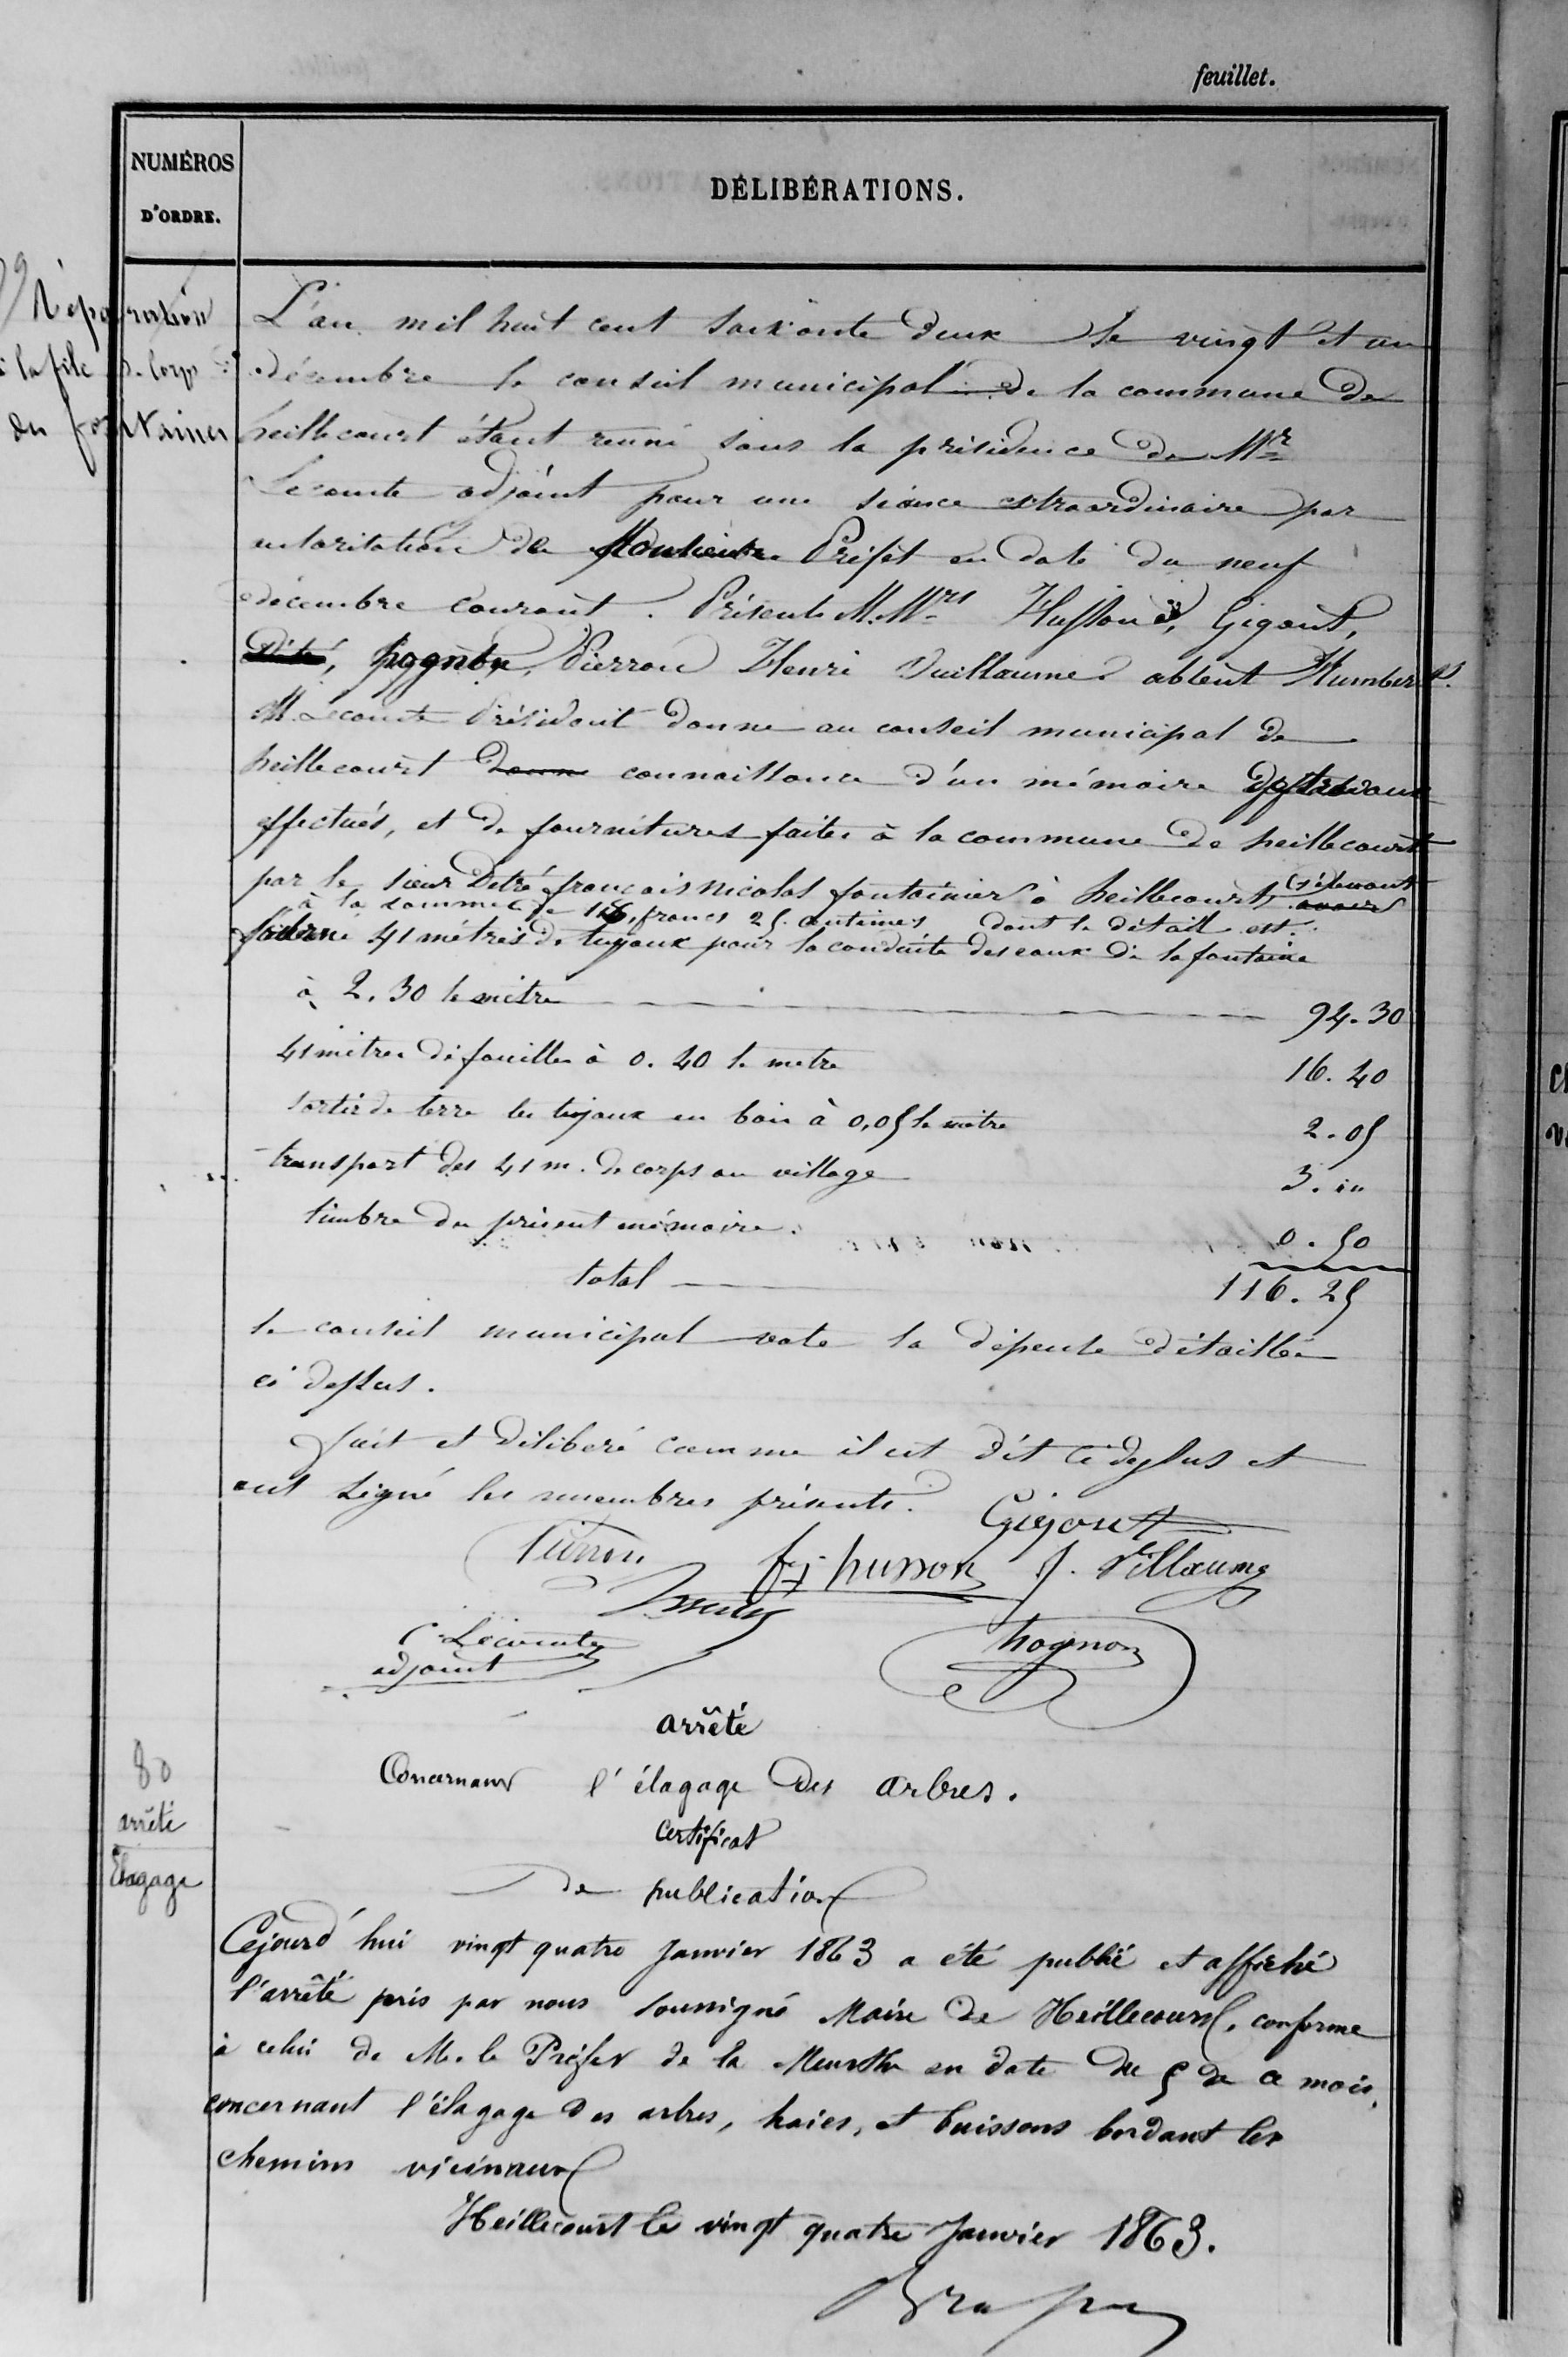 feuillet.
NUMÉROS
D'ORDRE.
DÉLIBÉRATIONS.
79
Réparation
à la file de corps
des fontaines
L'an mil huit cent soixante deux le vingt et un
décembre le conseil municipal de la commune de
heillecourt étant réuni sous la présidence de Mr
Lecomte adjoint pour une séance extraordinaire par
autorisation de Monsieur Préfet en date du neuf
décembre courant. Présents M.Mrs Husson, Gigout,
hognon, Pierron Henri Vuillaume absent Humbert.
M. Lecomte Président donne au conseil municipal de
heillecourt donne connaissance d'un mémoire des travaux
effectués, et de fournitures faites à la commune de heillecourt
par le sieur Detré françois nicolas fontainier à heillecourt, s'élevant
à la somme de 116 francs 25 centimes dont le détail est.
fourni 41 mètres de tuyaux pour la conduite des eaux de la fontaine
à 2.30 le mètre 94.30
41 mètres de fouilles à 0.40 le metre 16.40
sortir de terre les tuyaux en bois à 0,05 le mètre 2.05
transport des 41 m. de corps au village 3. "
timbre du présent mémoire. 0.50
total 116.25
le conseil municipal vote la dépense détaillée
ci dessus.
fait et délibéré comme il est dit ci dessus et
ont signé les membres présents.
Gigout
Pierron fs husson J. Villaume
C Lecomte
adjoint
hognon
80
arrêté
Elagage
arrêté
Concernant l'élagage des arbres.
certificat
de publication
Cejourd'hui vingt quatre Janvier 1863 a été publié et affiché
l'arrêté pris par nous soussigné Maire de Heillecourt, conforme
à celui de M. le Préfet de la Meurthe en date du 5 de ce mois,
concernant l'élagage des arbres, haies, et buissons bordant les
chemins vicinaux
Heillecourt le vingt quatre Janvier 1863.